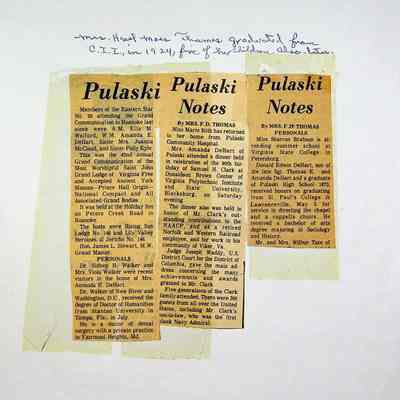 Mrs. Hazel Mae Thomas graduated from
C.I.I., in 1924, five of her children also later.
Pulaski
Members of the Eastern Star
No. 28 attending the Grand
Communication in
Roanoke last
week were R.M. Ella M.
Willard, W.M. Amanda E.
DeHart, Sister Mrs. Juanita
McCloud, and Sister Polly Kyle.
This was the 42nd annual
Grand Communication of the
Most Worshipful Saint John
Grand Lodge of Virginia Free
and Accepted Ancient York
Masons-Peters Hall Origin-
National Compact and All
Associated Grand Bodies.
It was held at the Holiday Inn
on Peters Creek Road in
Roanoke.
The hosts were Rising Sun
Lodge No. and Lily Valley
Heroines of Jericho No.
Hon. James L. Stewart, M.W.
Grand Master.
PERSONALS
Dr. Sidney B. Walker and
Mrs. Viola Walker were recent
visitors in the home of Mrs.
Amanda E. DeHart.
Dr. Walker of New River and
Washington, D.C., received the
degree of Doctor of Humanities
from Stanton University in
Tampa, Fla., in July.
He is a doctor of dental
surgery with a private practice
in Fairmount Heights, Md.
Pulaski
Notes
By MRS. F.D. THOMAS
Miss Marie Roth has returned
to her home from Pulaski
Community Hospital.
Mrs. Amanda DeHart of
Pulaski attended a dinner held
in celebration of the 80th bir-
thday of Samuel H. Clark at
Donaldson Brown Center of
Virginia Polytechnic Institute
and State University,
Blacksburg, on Saturday
evening.
The dinner also was held in
honor of Mr. Clark's out-
standing contributions to the
NAACP, and as a retired
Norfolk and Western Railroad
employee, and for work in his
community of Vicker, Va.
Judge Joseph Waddy, U.S.
District Court for the District of
Columbia, gave the main ad-
dress concerning the many
achievements and awards
granted to Mr. Clark.
Five generations of the Clark
family attended. There were 300
guests from all over the United
States, including Mr. Clark's
son-in-law, who was the first
black Navy Admiral.
Pulaski
Notes
By MRS. F.D. THOMAS
PERSONALS
Miss Sharron Braham is at-
tending summer school at
Virginia State College in
Petersburg.
Donald Edson DeHart, son of
the late Sgt. Thomas E. and
Amanda DeHart and a graduate
of Pulaski High School 1970,
received honors on graduating
from St. Paul's College in
Lawrenceville, May 5 for
service in directing the chapel
and a cappella choirs. He
received a bachelor of arts
degree majoring in Sociology
and History.
Mr. and Mrs. Wilbur Tate of